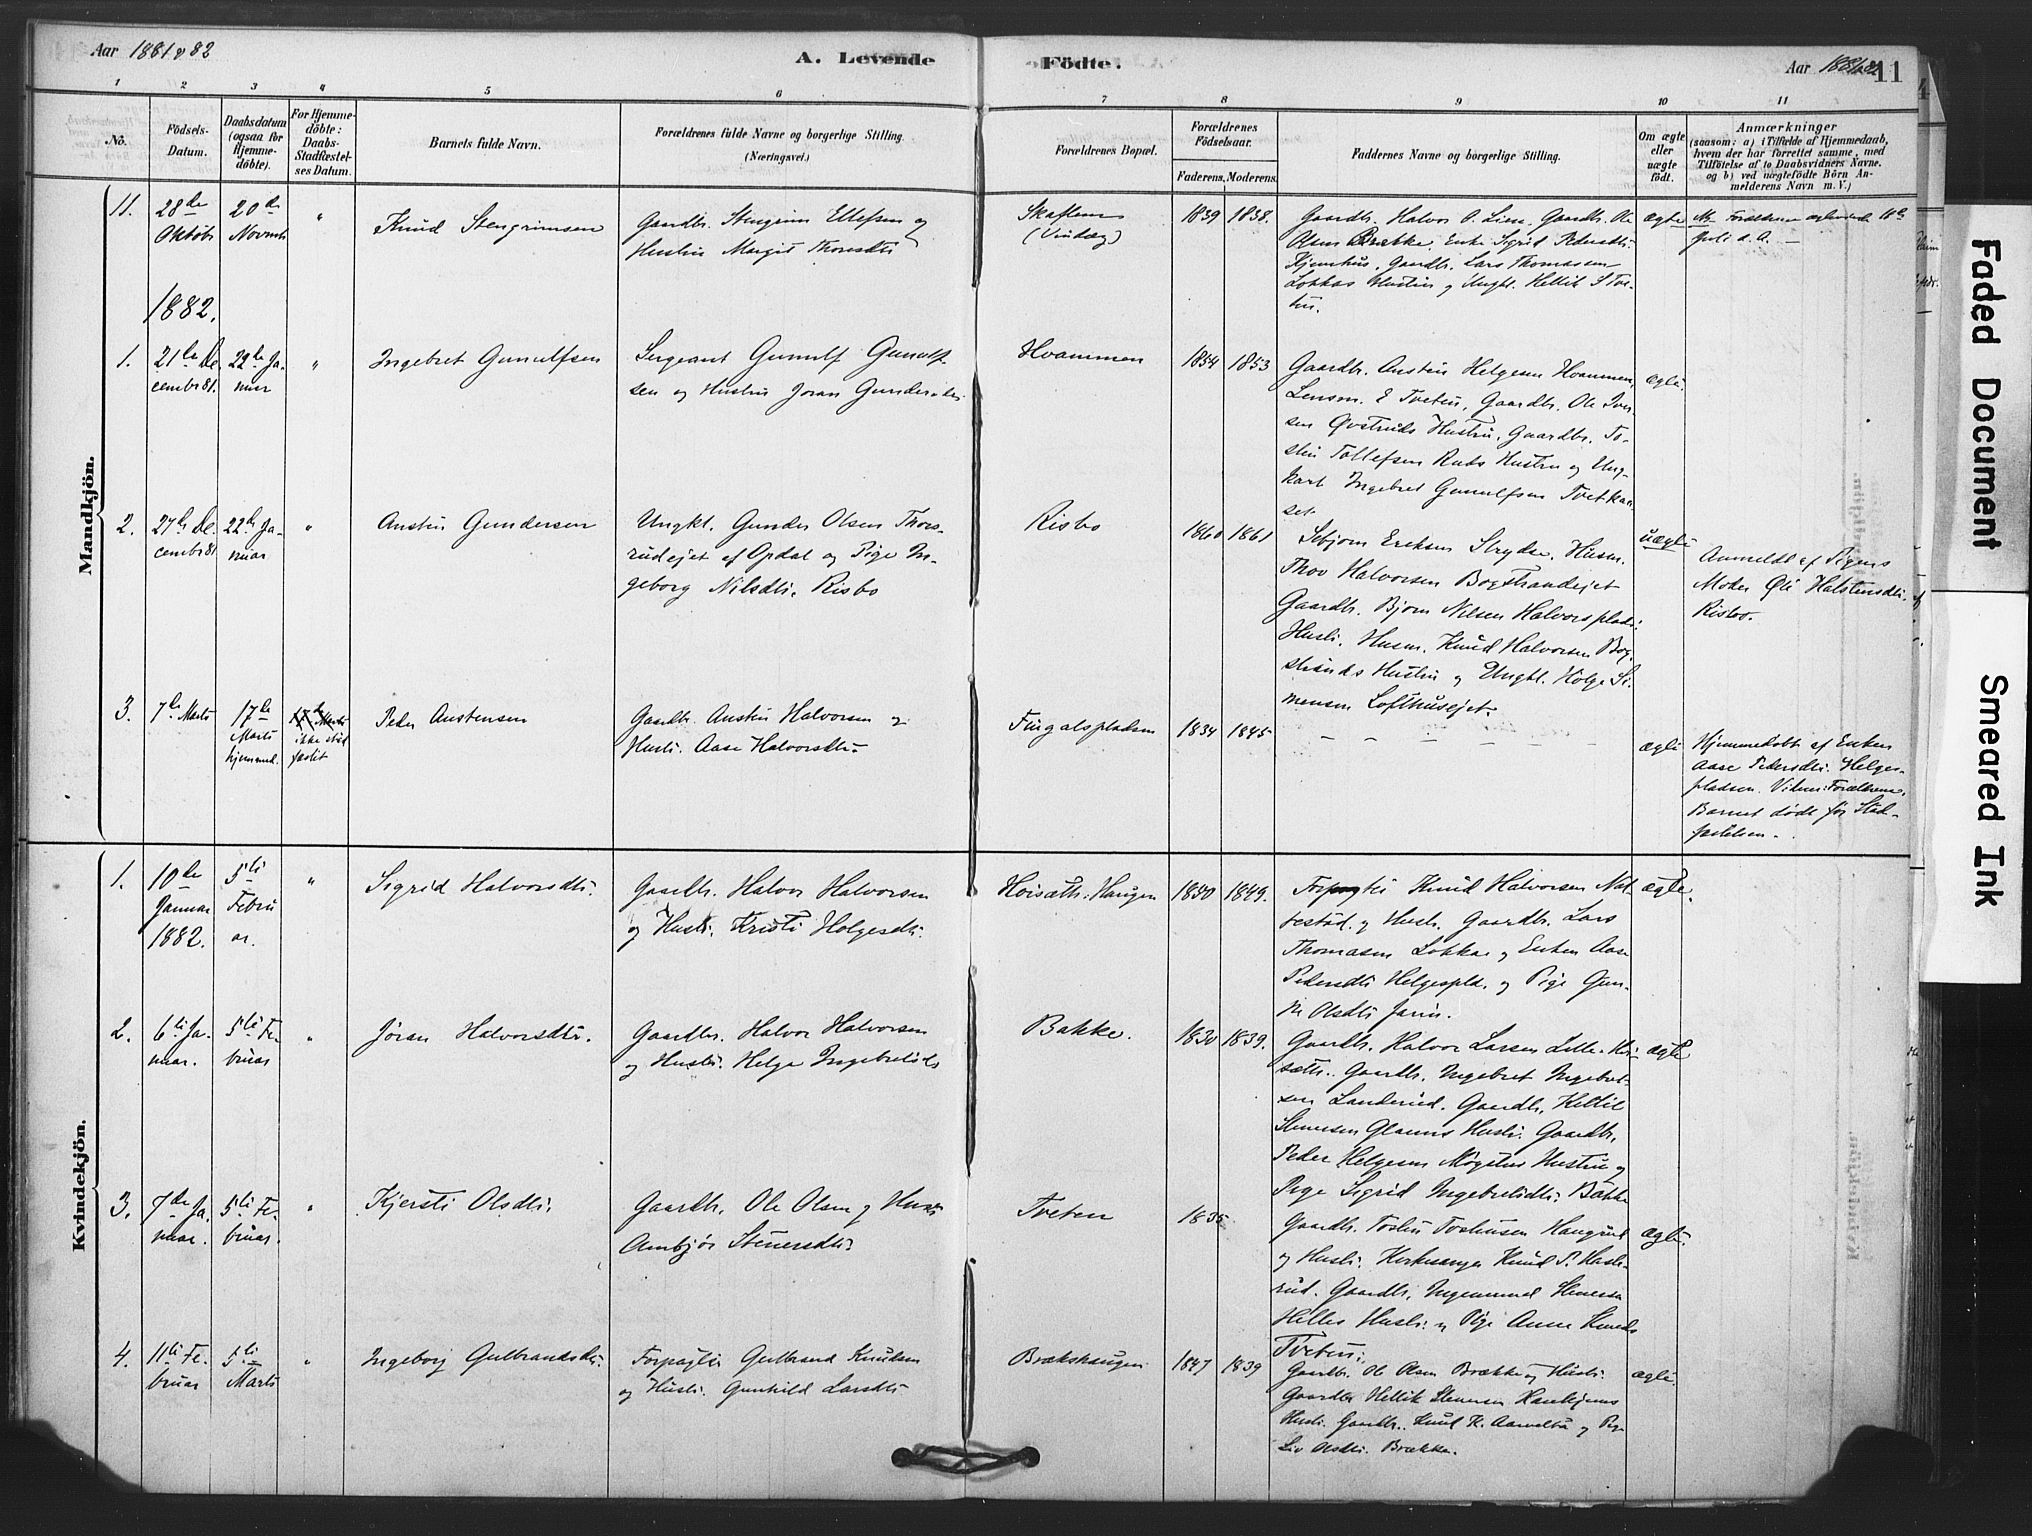 Aar 1881 & 82
A. Levende Födte.
Aar 1881 & 82
11
1 2 3 4 5 6 7 8 9 10 11
No.
Födsels-
Datum.
Daabsdatum
(ogsaa för
Hjemme-
döbte).
For Hjemme-
döbte:
Daabs-
Stadfæstel-
ses Datum.
Barnets fulde Navn.
Forældrenes fulde Navne og borgerlige Stilling.
(Næringsvei.)
Forældrenes Bopæl.
Forældrenes
Födselsaar.
Faderens. Moderens.
Faddernes Navne og borgerlige Stilling.
Om ægte
eller
uægte
födt.
Anmærkninger
(saasom: a) i Tilfælde af Hjemmedaab,
hvem der har forrettet samme, med
Tilföielse af to Daabsvidners Navne.
og b) ved uægtefödte Börn An-
melderens Navn m. V.)
Mandkjön.
11.
28de
Oktobr
20de
Novmb
"
Knud Stengrimsen
Gaardbr. Stengrim Ellefsen og
Hustru Margit Thoresdtr
(Vindeg)
1839 1838.
Gaardbr. Halvor O. Lien, Gaardbr. Ole
Olsen Brække, Enke Sigrid Pedersdtr.
Kjemhus, Gaardbr. Lars Thomasen
Løkkas Hustru og Ungk. Kittil S Tve-
ten.
ægte
Juli d. A. —
1882.
1.
21de De-
cembr 81.
22de Ja-
nuar
"
Ingebret Gunulfsen
Sergeant Gunulf Gunulf-
sen og Hustru Joran Gundersdtr.
Hvammen
1854 1853
Gaardbr. Austin Helgesen Hvammen,
Lensm. E Tveten, Gaardbr. Ole Iver-
sen Øvstruds Hustru, Gaardbr. To-
sten Tollefsen Ruds Hustru og Ung-
karl Ingebret Gunulfsen Tvetkaa-
set.
ægte.
2.
27de De-
cembr 81
22de Ja-
nuar
"
Austin Gundersen
Ungkl. Gunder Olsen Thors-
rudejet af Opdal og Pige In-
geborg Nilsdtr. Risbo
Risbo
1860 1861
Sebjørn Eriksen Strydse, Husm.
Thov Halvorsen Bogstrandejet
Gaardbr. Bjørn Nilsen Halvorsplads
Hustr. Husm. Knud Halvorsen Bog-
strands Hustru og Ungk. Holge Si-
mensen Lofthusejet.
uægte
Anmeldt af Pigens
Moder Øli Halstensdtr.
Risbo.
3.
7de Marts
17de
Marts
hjemmed.
17de Marts
ikke stad-
fæstet
Peder Austensen
Gaardbr. Austin Halvorsen og
Hustr. Aase Halvorsdtr.
Fingalspladsen
1834 1845
— — — — — — —
ægte
Hjemmedøbt af Enken
Aase Pedersdtr. Helges-
pladsen. Vidner: Forældrene.
Barnet døde før Stad-
fæstelsen.
Kvindekjön.
1.
10de
Januar
1882.
5te
Febru
ar.
"
Sigrid Halvorsdtr.
Gaardbr. Halvor Halvorsen
og Hustr. Kristi Holgesdtr.
Hoisæth: Haugen
1850 1849.
Forpagter Knud Halvorsen Nat-
testad og Hustr. Gaardbr. Lars
Thomasen Løkka og Enken Aase
Pedersdtr Helgespld. og Pige Gun-
ægte.
2.
6te Ja-
nuar.
5te Fe-
bruar
"
Jøran Halvorsdtr.
Gaardbr. Halvor Halvorsen
og Hustr. Helge Ingebretsdtr
Bakke.
1830 1839.
Gaardbr. Halvor Larsen Lille-Hoi-
sæth. Gaardbr. Ingebret Ingebret-
sen Landerud. Gaardbr. Kittil
Stenersen Glaims Hustr. Gaardbr.
Peder Helgesen Møgsters Hustru og
Pige Sigrid Ingebretsdtr. Bakke
ægte
3.
7de Ja-
nuar.
5te Fe-
bruar.
"
Kjersti Olsdtr.
Gaardbr. Ole Olsen og Hustr
Ambjør Stenersdtr.
Tveten
1835
Gaardbr. Tosten Tostensen Haugrud
og Hustr. Kirkesanger Knud P. Hasle-
rud. Gaardbr. Ingemund Stenersen
Helles Hustr. og Pige Anne Knudsd
Tveten.
ægte.
4.
11te Fe-
bruar
5te
Marts
"
Ingeborg Gulbrandsdtr.
Forpagter Gulbrand Knudsen
og Hustr. Gunhild Larsdtr
Brækshaugen
1847 1839
Gaardbr. Ole Olsen Brække og Hustr.
Gaardbr Kittil Stenersen
Hustr. Gaardbr. Knud K. og Pige
Liv Olsdtr. Brække.
ægte.
Faded Document
Smeared Ink